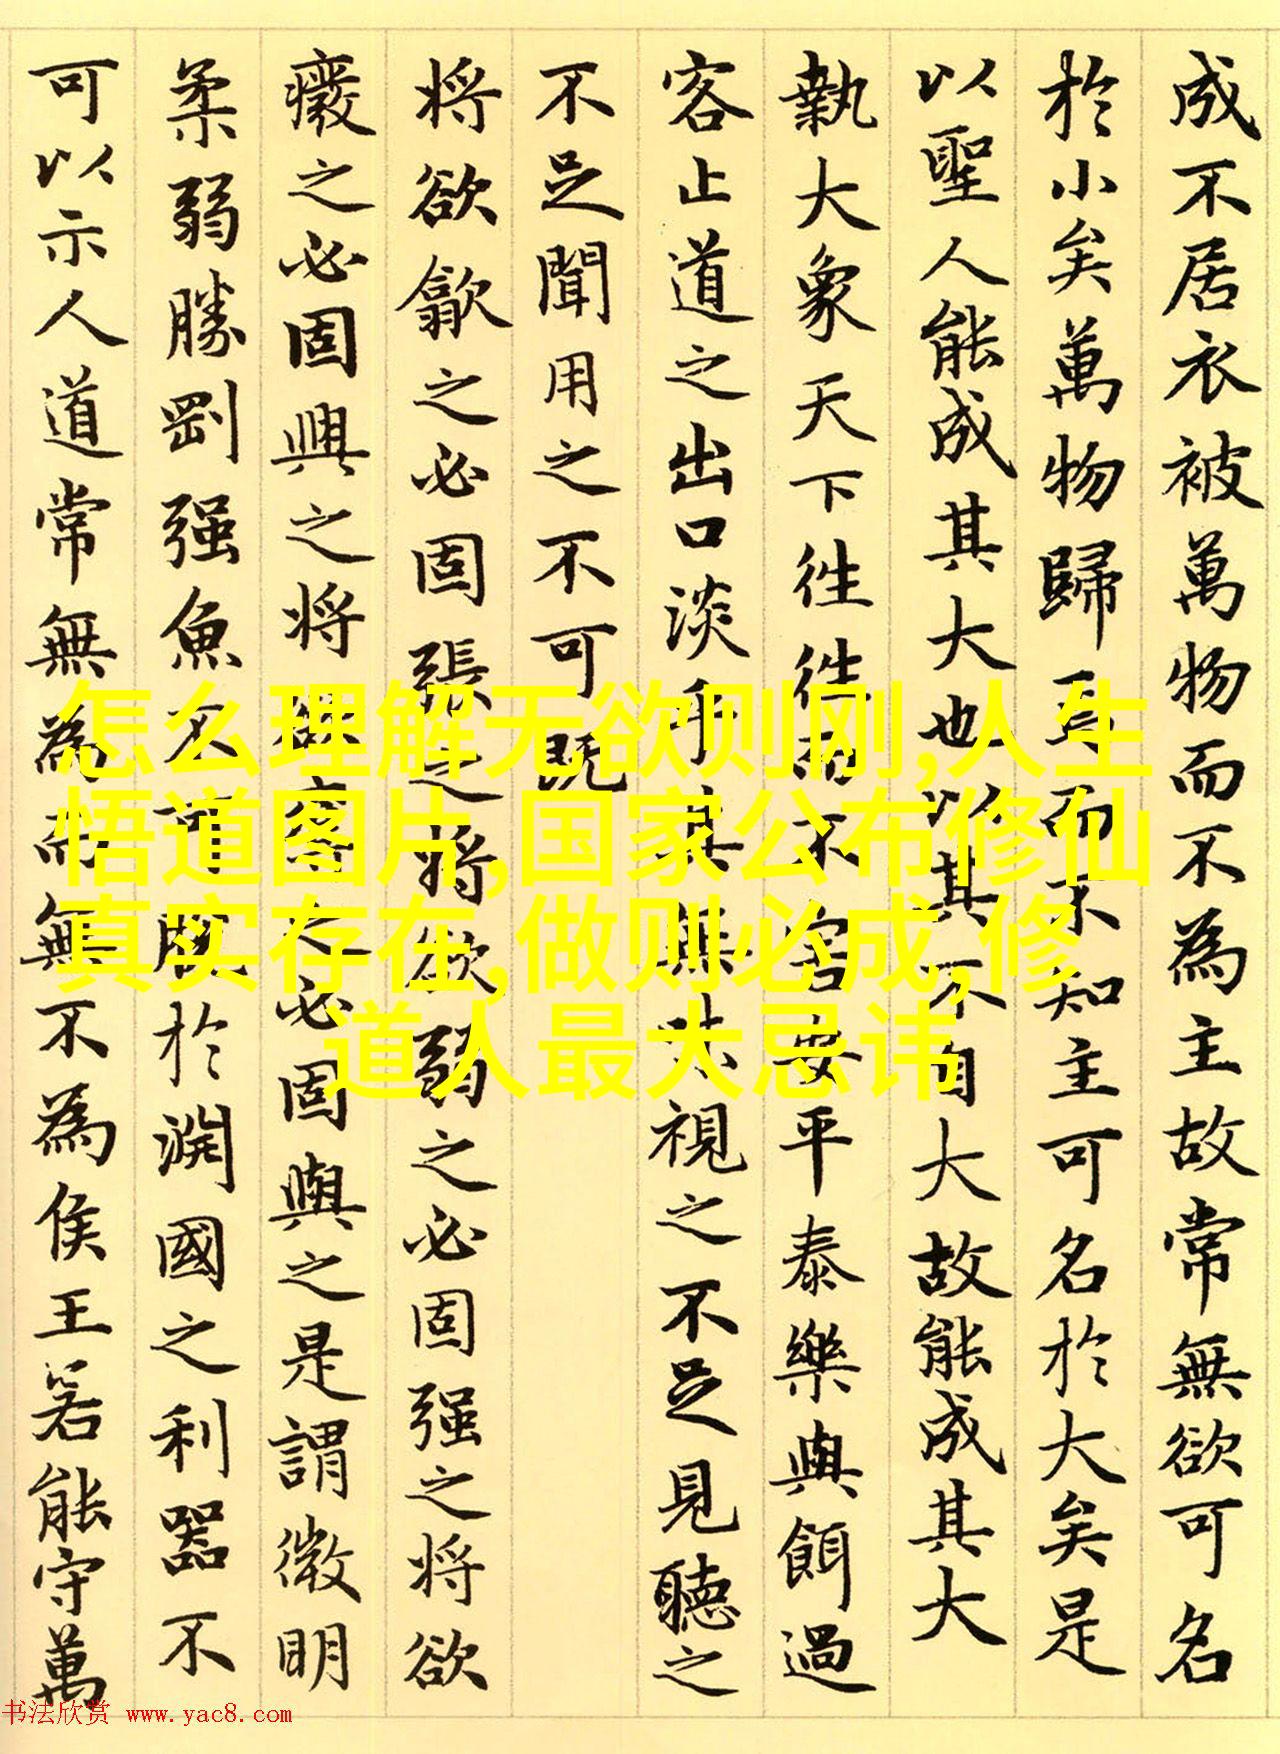 成不居衣被萬物而不為主故常無欲可名
於小矣萬物歸焉而不知主可名於大矣是
以聖人能成其大也以其不自大故能成其大
執大象天下往往而不害安平泰樂與餌過
客止道之出口淡乎其無味視之不足見聽之
不足聞用之不可既
将欲歙之必固張之将欲弱之必固强之将欲
癈之必固興之将欲奪之必固與之是謂微明
柔弱勝剛强魚不可脫於淵國之利器不
可以示人道常無為而無不為侯王若能守萬
怎么理解无欲则刚,人生
悟道图片,国家公布修仙
真实存在,做则必成,修
道人最大忌讳
书法欣赏 www.yac8.com